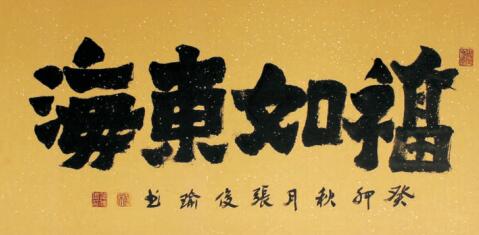 福如東海
癸卯秋月張俊瑜书